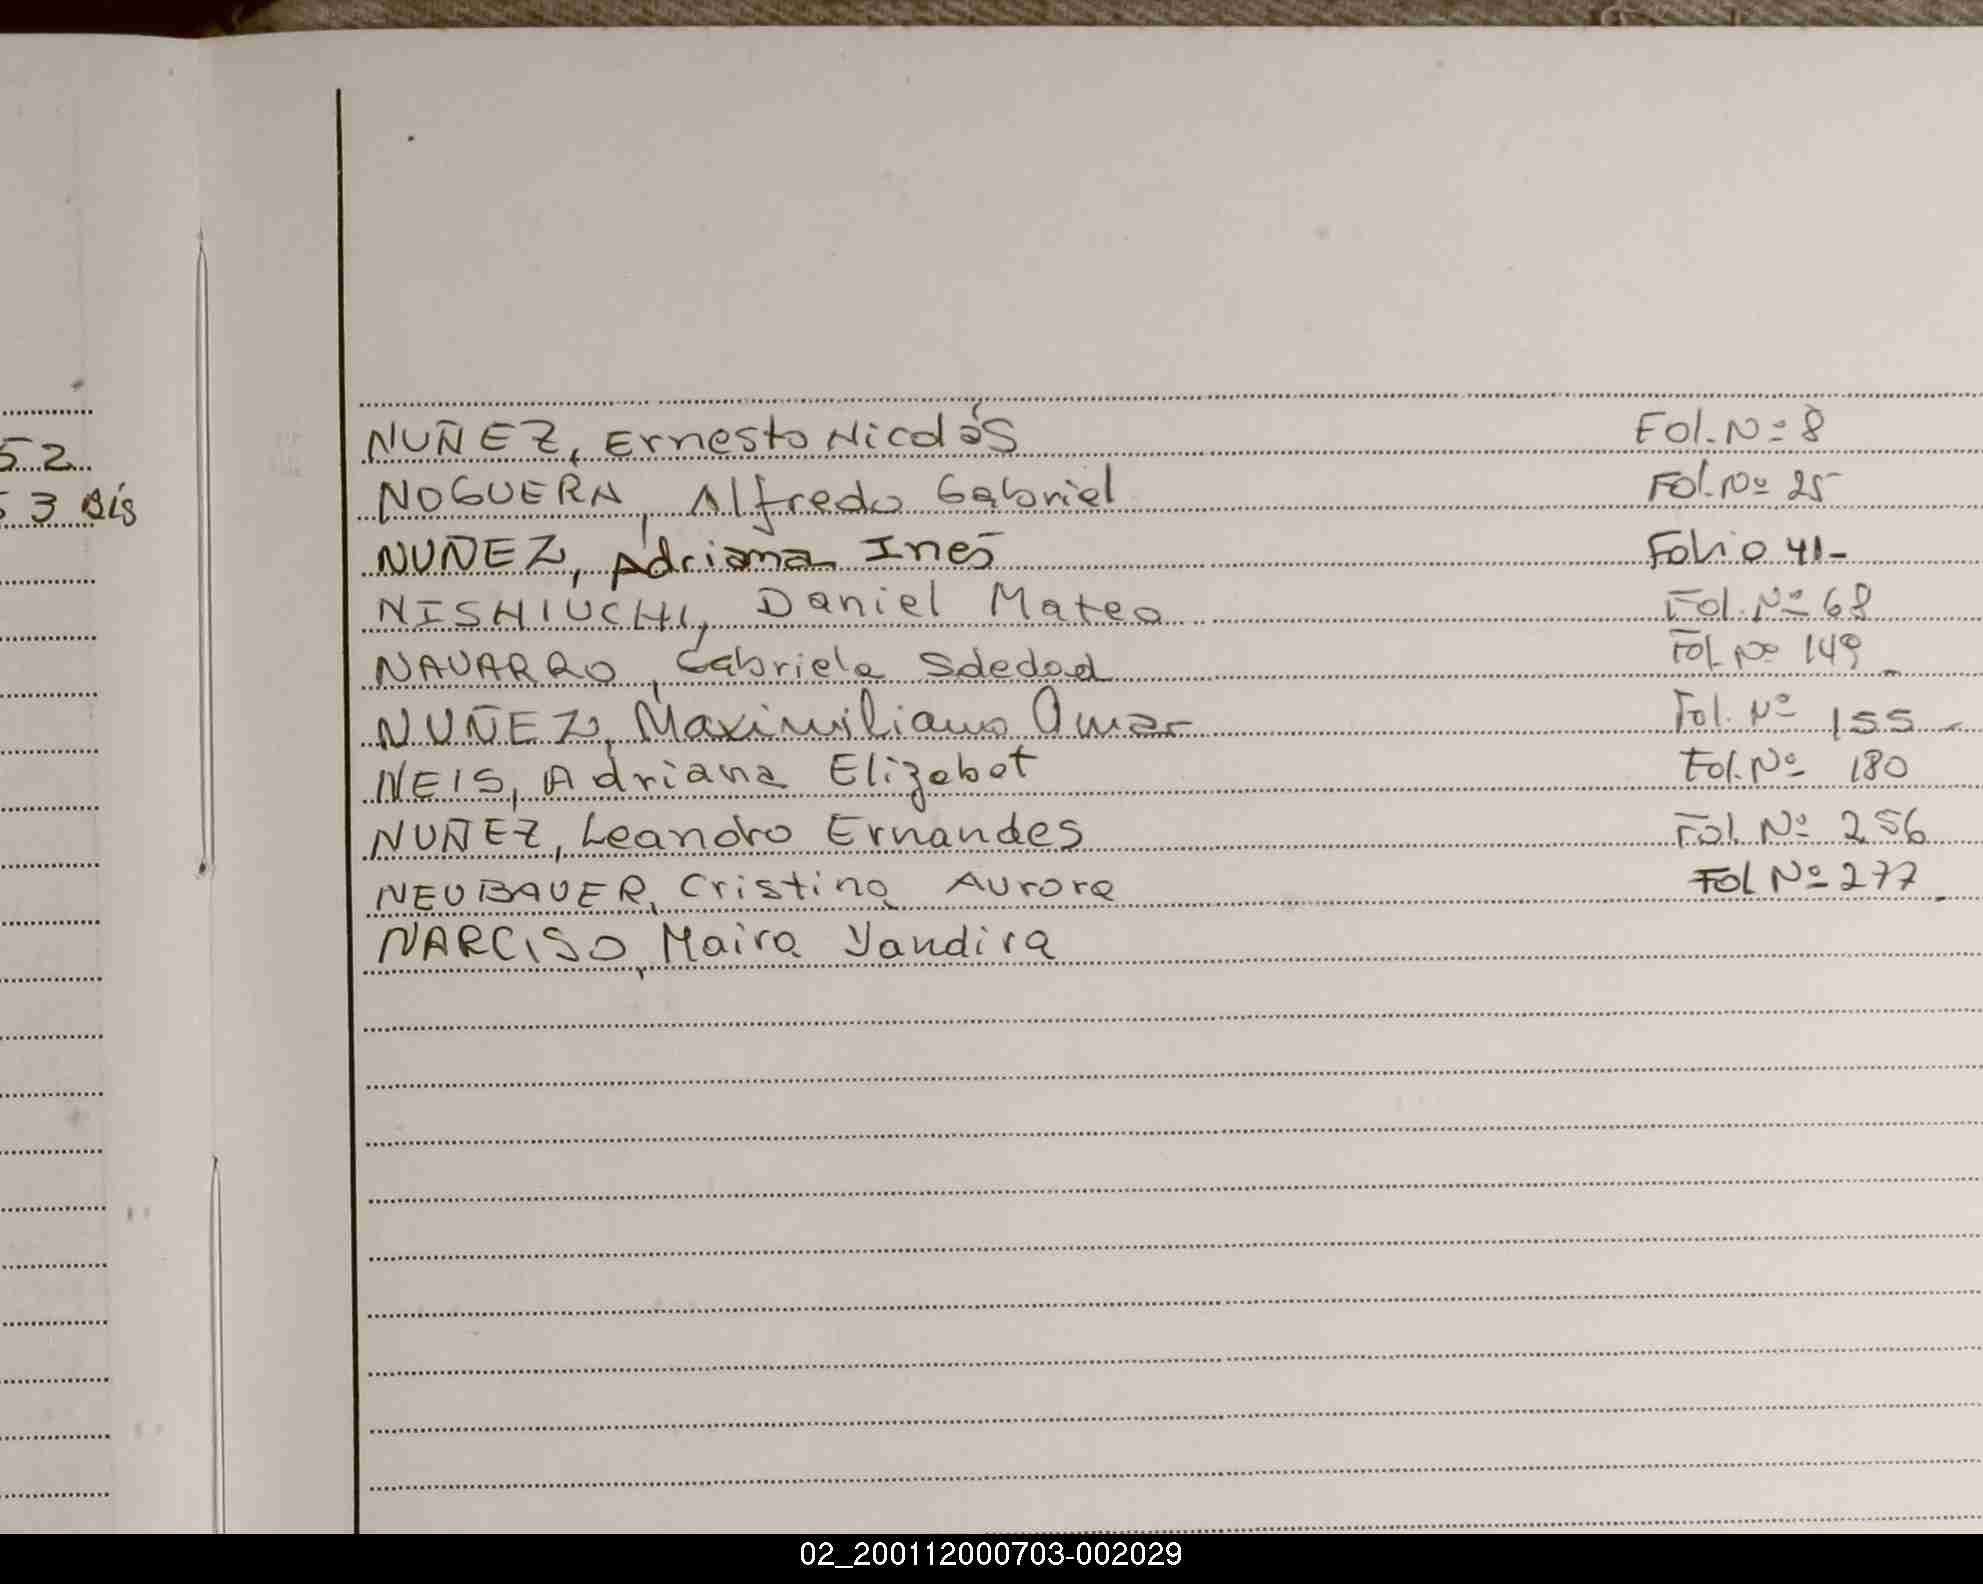 52
53 Bis
NUÑEZ, Ernesto Nicolás Fol. Nº 8
NOGUERA, Alfredo Gabriel Fol. Nº 25
NUÑEZ, Adriana Inés Folio 41-
NISHIUCHI, Daniel Mateo Fol. Nº 68
NAVARRO, Gabriela Soledad Fol. Nº 149
NUÑEZ, Maximiliano Omar Fol. Nº 155
NEIS, Adriana Elizabet Fol. Nº 180
NUÑEZ, Leandro Ernandes Fol. Nº 256
NEUBAUER, Cristina Aurora Fol Nº 277
NARCISO, Maira Yandira
02_200112000703-002029